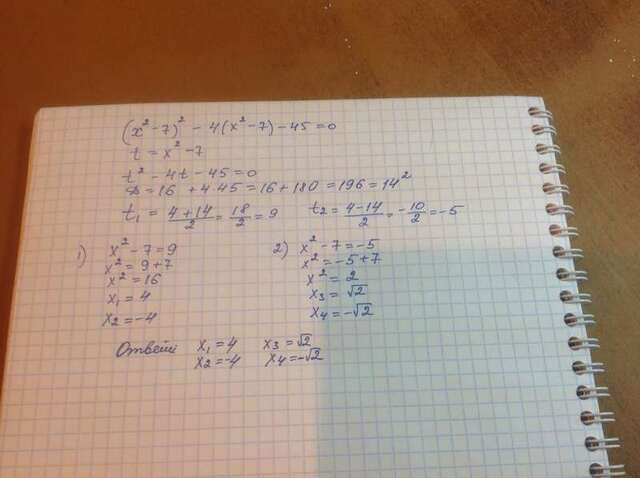 (x² - 7)² - 4(x² - 7) - 45 = 0
t = x² - 7
t² - 4t - 45 = 0
D = 16 + 4·45 = 16 + 180 = 196 = 14²
t₁ = (4+14)/2 = 18/2 = 9 t₂ = (4-14)/2 = -10/2 = -5
1) x² - 7 = 9 2) x² - 7 = -5
x² = 9 + 7 x² = -5 + 7
x² = 16 x² = 2
x₁ = 4 x₃ = √2
x₂ = -4 x₄ = -√2
Ответ: x₁ = 4 x₃ = √2
x₂ = -4 x₄ = -√2